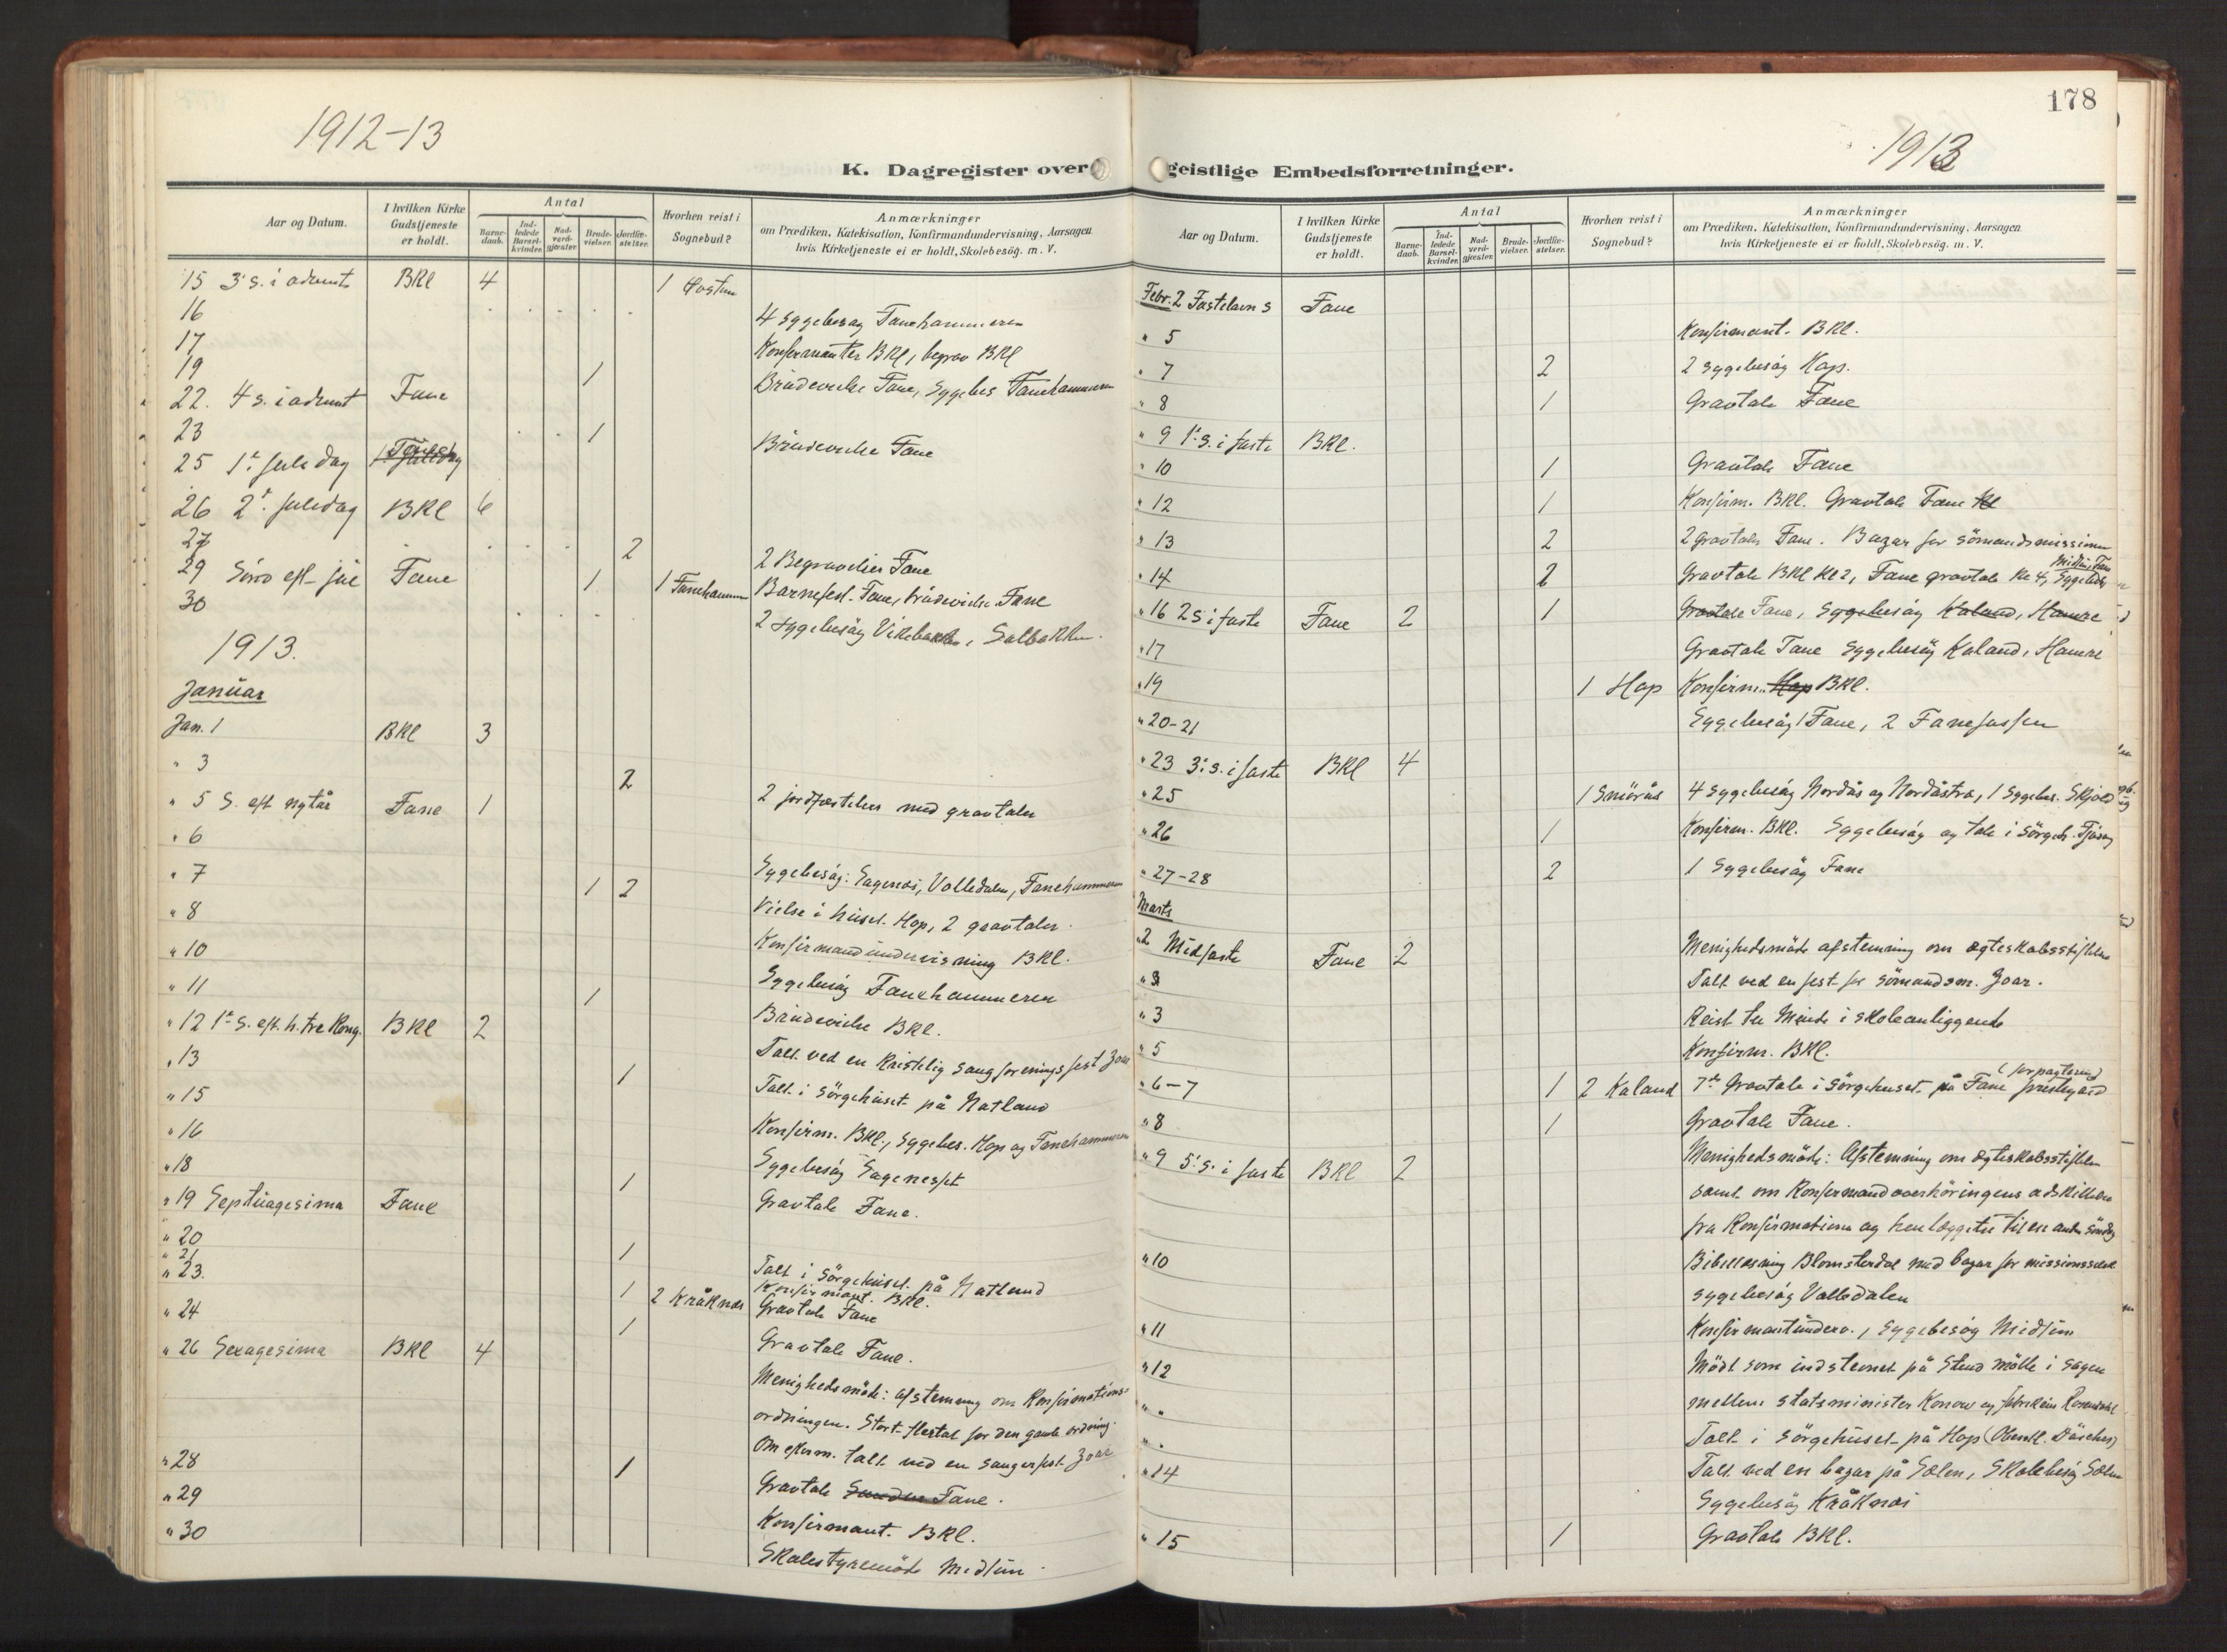 1912-13
K. Dagregister over
Aar og Datum.
I hvilken Kirke Gudstjeneste er holdt.
Antal
Barnedaab.
Indledede Barselkvinder.
Nadverdgjæster.
Brudevielser.
Jordfæstelser.
Hvorhen reist i Sognebud?
Anmærkninger
om Prædiken, Katekisation, Konfirmandundervisning, Aarsagen
hvis Kirketjeneste ei er holdt, Skolebesög. m. V.
15 3' s. i advent BKl 4 1
16 4 sygebesøg Fanehammeren
17 Konfirmanter BKl, begrav BKl
19 1 Brudevielse Fane, Sygebes Fanehammeren
22. 4 s. i advent Fane
23 1 Brudevielse Fane
25 1ste juledag Fane
26 2. juledag BKl 6
27 2 2 Begravelser Fane
29 Fane 1 1 Fanehammeren Barnefest. Fane, brudevielse Fane
30 2 sygebesøg
1913.
Januar
Jan. 1 BKl 3
" 3 2 2 jordfæstelser med gravtaler
" 5 S. eft nytår Fane 1
" 6 Sygebesög: Fanehammeren
" 7 1 2 Vielse i huset. Hop, 2 gravtaler.
" 8 Konfirmandundervisning BKl.
" 10 Sygebesög Fanehammeren
" 11 1 Brudevielse BKl.
" 12 1ste S. eft. h. tre Kong. BKl 2
" 13 1 Talt i Sörgehuset på Natland
" 15 Konfirm. BKl., sygebes. Hop og Fanehammeren
" 16 Sygebesög
" 18 1 Gravtale Fane.
" 19 Septuagesima Fane
" 20 1 Talt i Sörgehuset på Natland
" 21 Konfirmant. BKl.
" 23. 1 2 Kråknes Gravtale Fane
" 24 1 Gravtale Fane.
" 26 Sexagesima BKl 4 Menighedsmöde: afstemning om Konfirmations-
ordningen. Stort flertal for den gamle ordning.
Om efterm. talt ved en sangerfest Zoar
" 28 1 Gravtale Fane.
" 29 Konfirmant. BKl.
" 30 Skolestyremöde Midtun
178
1913
geistlige Embedsforretninger.
Aar og Datum.
I hvilken Kirke Gudstjeneste er holdt.
Antal
Barnedaab.
Indledede Barselkvinder.
Nadverdgjæster.
Brudevielser.
Jordfæstelser.
Hvorhen reist i Sognebud?
Anmærkninger
om Prædiken, Katekisation, Konfirmandundervisning, Aarsagen
hvis Kirketjeneste ei er holdt, Skolebesög. m. V.
Febr. 2 Fastelavn s Fane
" 5 Konfirmant. BKl.
" 7 2 2 sygebesøg Hop.
" 8 1 Gravtale Fane
" 9 1ste s. i faste BKl.
" 10 1 Gravtale Fane
" 12 1 Konfirm. BKl. Gravtale Fane
" 13 2 2 gravtaler Fane. Bazar for sömandsmissionen
" 14 2 Gravtale BKl Kl 2, Fane gravtale Kl 4,
" 16 2 s i faste Fane 2 1 Gravtale Fane, Sygebesög Kaland, Hamre
" 17 Gravtale Fane Sygebesög Kaland, Hamre
" 19 1 Hop Konfirm. Hop BKl.
" 20-21 Sygebesög 1 Fane, 2 Fanefossen
" 23 3' s. i faste BKl 4
" 25 1 Smörås 4 sygebesøg Nordås og Nordåstræ, 1 sygebes. Skjold
" 26 1 Konfirm. BKl. Sygebesög og tale i Sörgeh.
" 27-28 2 1 Sygebesög Fane
Marts
" 2 Midfaste Fane 2 Menighedsmöde afstemning om ægteskabsstiftelse
" 3 Talt ved en fest for Sömandsm. Zoar.
" 3 Reist til Minde i skoleanliggende
" 5 Konfirm. BKl.
" 6-7 1 2 Kaland 7de Gravtale i Sörgehuset på Fane prestegård (forpagteren)
" 8 1 Gravtale Fane.
" 9 5' s. i faste BKl 2 Menighedsmöde: Afstemning om ægteskabsstiftelsen
samt om Konfirmandoverhöringens adskillelse
fra Konfirmationen og henlæggelse til en anden Söndag
" 10 Bibellæsning Blomsterdal med bazar for missionsselsk
sygebesög
" 11 Konfirmantunderv., Sygebesög Midtun
" 12 Mödt som indstevnet på Stend mölle i sagen
" " mellem statsminister Konow og
" " Talt i Sörgehuset på Hop
" 14 Talt ved en bazar på Sælen, Skolebesög Sælen
Sygebesög Kråknes
" 15 1 Gravtale BKl.